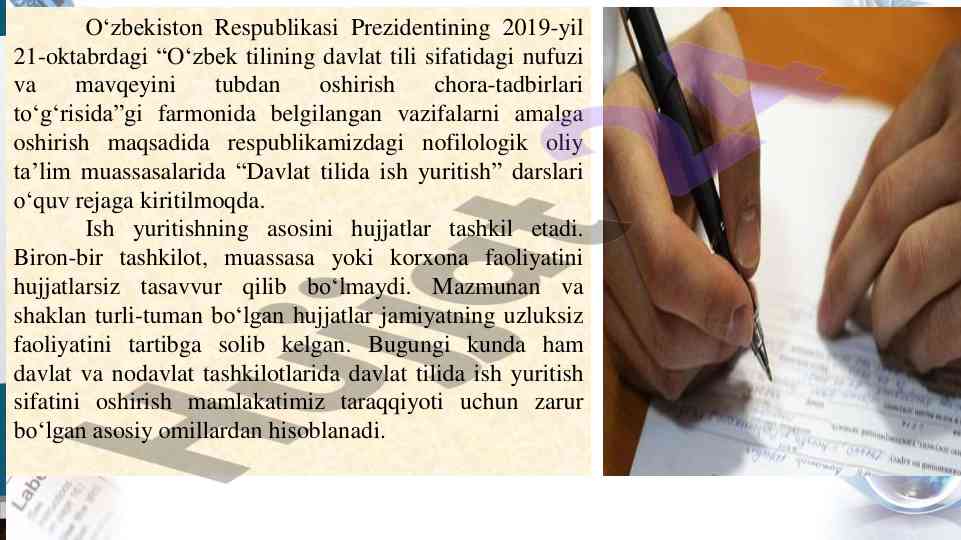 O‘zbekiston Respublikasi Prezidentining 2019-yil
21-oktabrdagi “O‘zbek tilining davlat tili sifatidagi nufuzi
va mavqeyini tubdan oshirish chora-tadbirlari
to‘g‘risida”gi farmonida belgilangan vazifalarni amalga
oshirish maqsadida respublikamizdagi nofilologik oliy
ta’lim muassasalarida “Davlat tilida ish yuritish” darslari
o‘quv rejaga kiritilmoqda.
Ish yuritishning asosini hujjatlar tashkil etadi.
Biron-bir tashkilot, muassasa yoki korxona faoliyatini
hujjatlarsiz tasavvur qilib bo‘lmaydi. Mazmunan va
shaklan turli-tuman bo‘lgan hujjatlar jamiyatning uzluksiz
faoliyatini tartibga solib kelgan. Bugungi kunda ham
davlat va nodavlat tashkilotlarida davlat tilida ish yuritish
sifatini oshirish mamlakatimiz taraqqiyoti uchun zarur
bo‘lgan asosiy omillardan hisoblanadi.
Hujjat 24
Labo